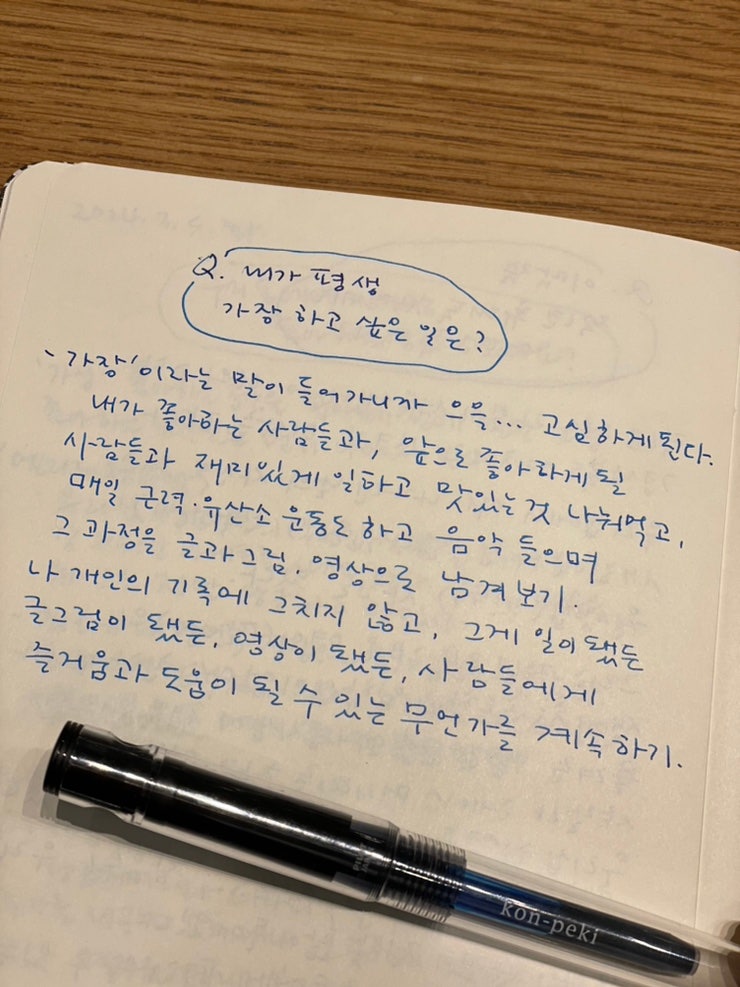 Q. 내가 평생
가장 하고 싶은 일은?
'가장'이라는 말이 들어가니까 으음... 고심하게 된다.
내가 좋아하는 사람들과, 앞으로 좋아하게 될
사람들과 재미있게 일하고 맛있는 것 나눠먹고,
매일 근력·유산소 운동도 하고 음악 들으며
그 과정을 글과 그림, 영상으로 남겨보기.
나 개인의 기록에 그치지 않고, 그게 일이 됐든
글그림이 됐든, 영상이 됐든, 사람들에게
즐거움과 도움이 될 수 있는 무언가를 계속하기.
kon-peki